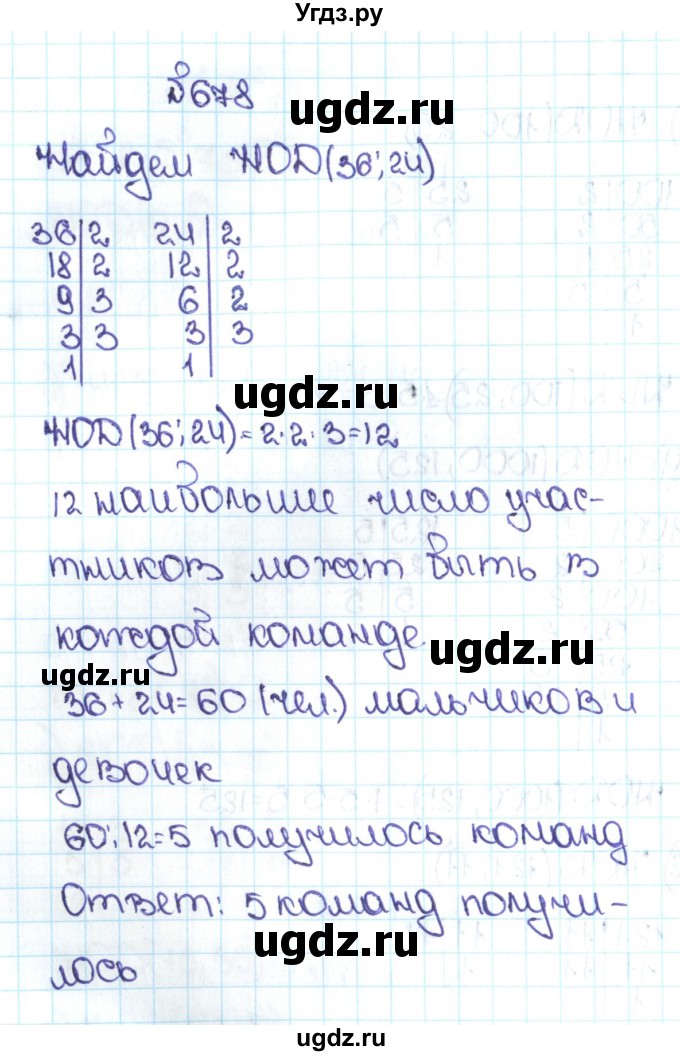 Угдз.ру
№678
ugdz.ru
Найдем НОД(36;24)
36 2 24 2
18 2 12 2
9 3 6 2
3 3 3 3
1 1
ugdz.ru
НОД(36;24)=2·2·3=12
12 наибольшие число учас-
тников может быть в
каждой команде
ugdz.ru
ugdz.ru
36+24=60 (чел.) мальчиков и
девочек
60:12=5 получилось команд
Ответ: 5 команд получи-
ugdz.ru
лось
ugdz.ru